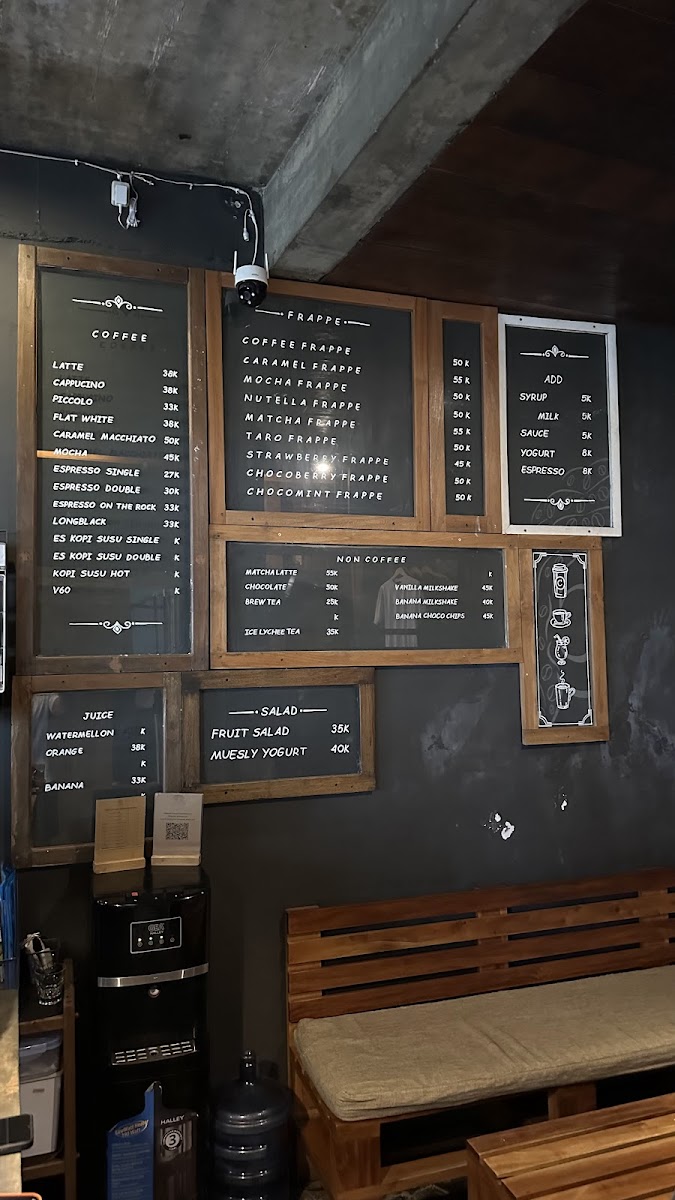 COFFEE
LATTE 38K
CAPPUCINO 38K
PICCOLO 33K
FLAT WHITE 38K
CARAMEL MACCHIATO 50K
MOCHA 45K
ESPRESSO SINGLE 27K
ESPRESSO DOUBLE 30K
ESPRESSO ON THE ROCK 33K
LONGBLACK 33K
ES KOPI SUSU SINGLE K
ES KOPI SUSU DOUBLE K
KOPI SUSU HOT K
V60 K
FRAPPE
COFFEE FRAPPE 50 K
CARAMEL FRAPPE 55 K
MOCHA FRAPPE 50 K
NUTELLA FRAPPE 50 K
MATCHA FRAPPE 55 K
TARO FRAPPE 50 K
STRAWBERRY FRAPPE 45 K
CHOCOBERRY FRAPPE 50 K
CHOCOMINT FRAPPE 50 K
ADD
SYRUP 5K
MILK 5K
SAUCE 5K
YOGURT 8K
ESPRESSO 8K
NON COFFEE
MATCHA LATTE 55K
CHOCOLATE 50K
BREW TEA 25K
K
ICE LYCHEE TEA 35K
K
VANILLA MILKSHAKE 45K
BANANA MILKSHAKE 40K
BANANA CHOCO CHIPS 45K
JUICE
WATERMELLON K
ORANGE 38K
K
BANANA 33K
SALAD
FRUIT SALAD 35K
MUESLY YOGURT 40K
HALLEY
3